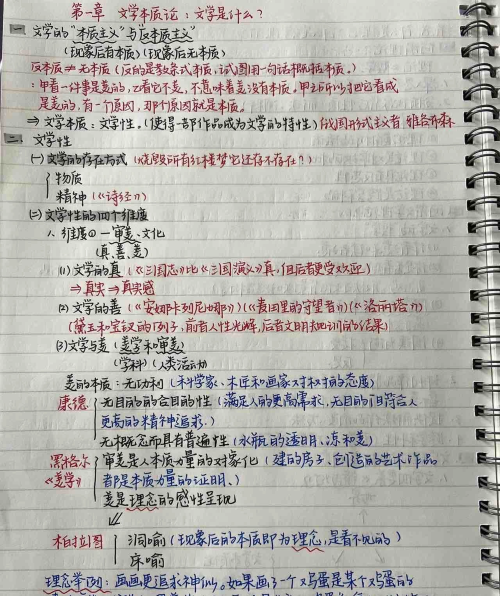 第一章 文学本质论：文学是什么？
一 文学的“本质主义”与“反本质主义”
(现象后有本质)(现象后无本质)
反本质≠无本质(反的是教条式本质，试图用一句话概括本质。)
：甲看一件事是美的，乙看它不美，不意味着美没有本质。甲之所以把它看成
是美的，有一个原因，那个原因就是本质。
⇒文学本质：文学性。(使得一部作品成为文学的特性)俄国形式主义者 雅各布森
二、文学性
(一)文学的存在方式(烧毁所有红楼梦它还存不存在？)
物质
精神(《诗经》)
(二)文学性的四个维度
1、维度① — 审美、文化
(真、善、美)
(1)文学的真(《三国志》比《三国演义》真，但后者更受欢迎)
⇒真实⇒真实感
(2)文学的善(《安娜卡列尼娜》)(《麦田里的守望者》)(《洛丽塔》)
(黛玉和宝钗的例子，前者人性光辉，后者文明规训的结果)
(3)文学与美(美学和审美)
(学科)(人类活动)
美的本质：无功利(科学家、木匠和画家对树的态度)
康德 无目的的合目的性(满足人的更高需求，无目的但符合人
更高的精神追求。)
无概念而具有普遍性(水瓶的透明、冻和美)
黑格尔 审美是人本质力量的对象化(建的房子、创造的艺术作品
《美学》 都是本质力量的证明。)
美是理念的感性呈现
柏拉图 洞喻(现象后的本质即为理念，是看不见的)
床喻
理念举例：画画更追求神似。如果画了一个鸡蛋是某个鸡蛋的